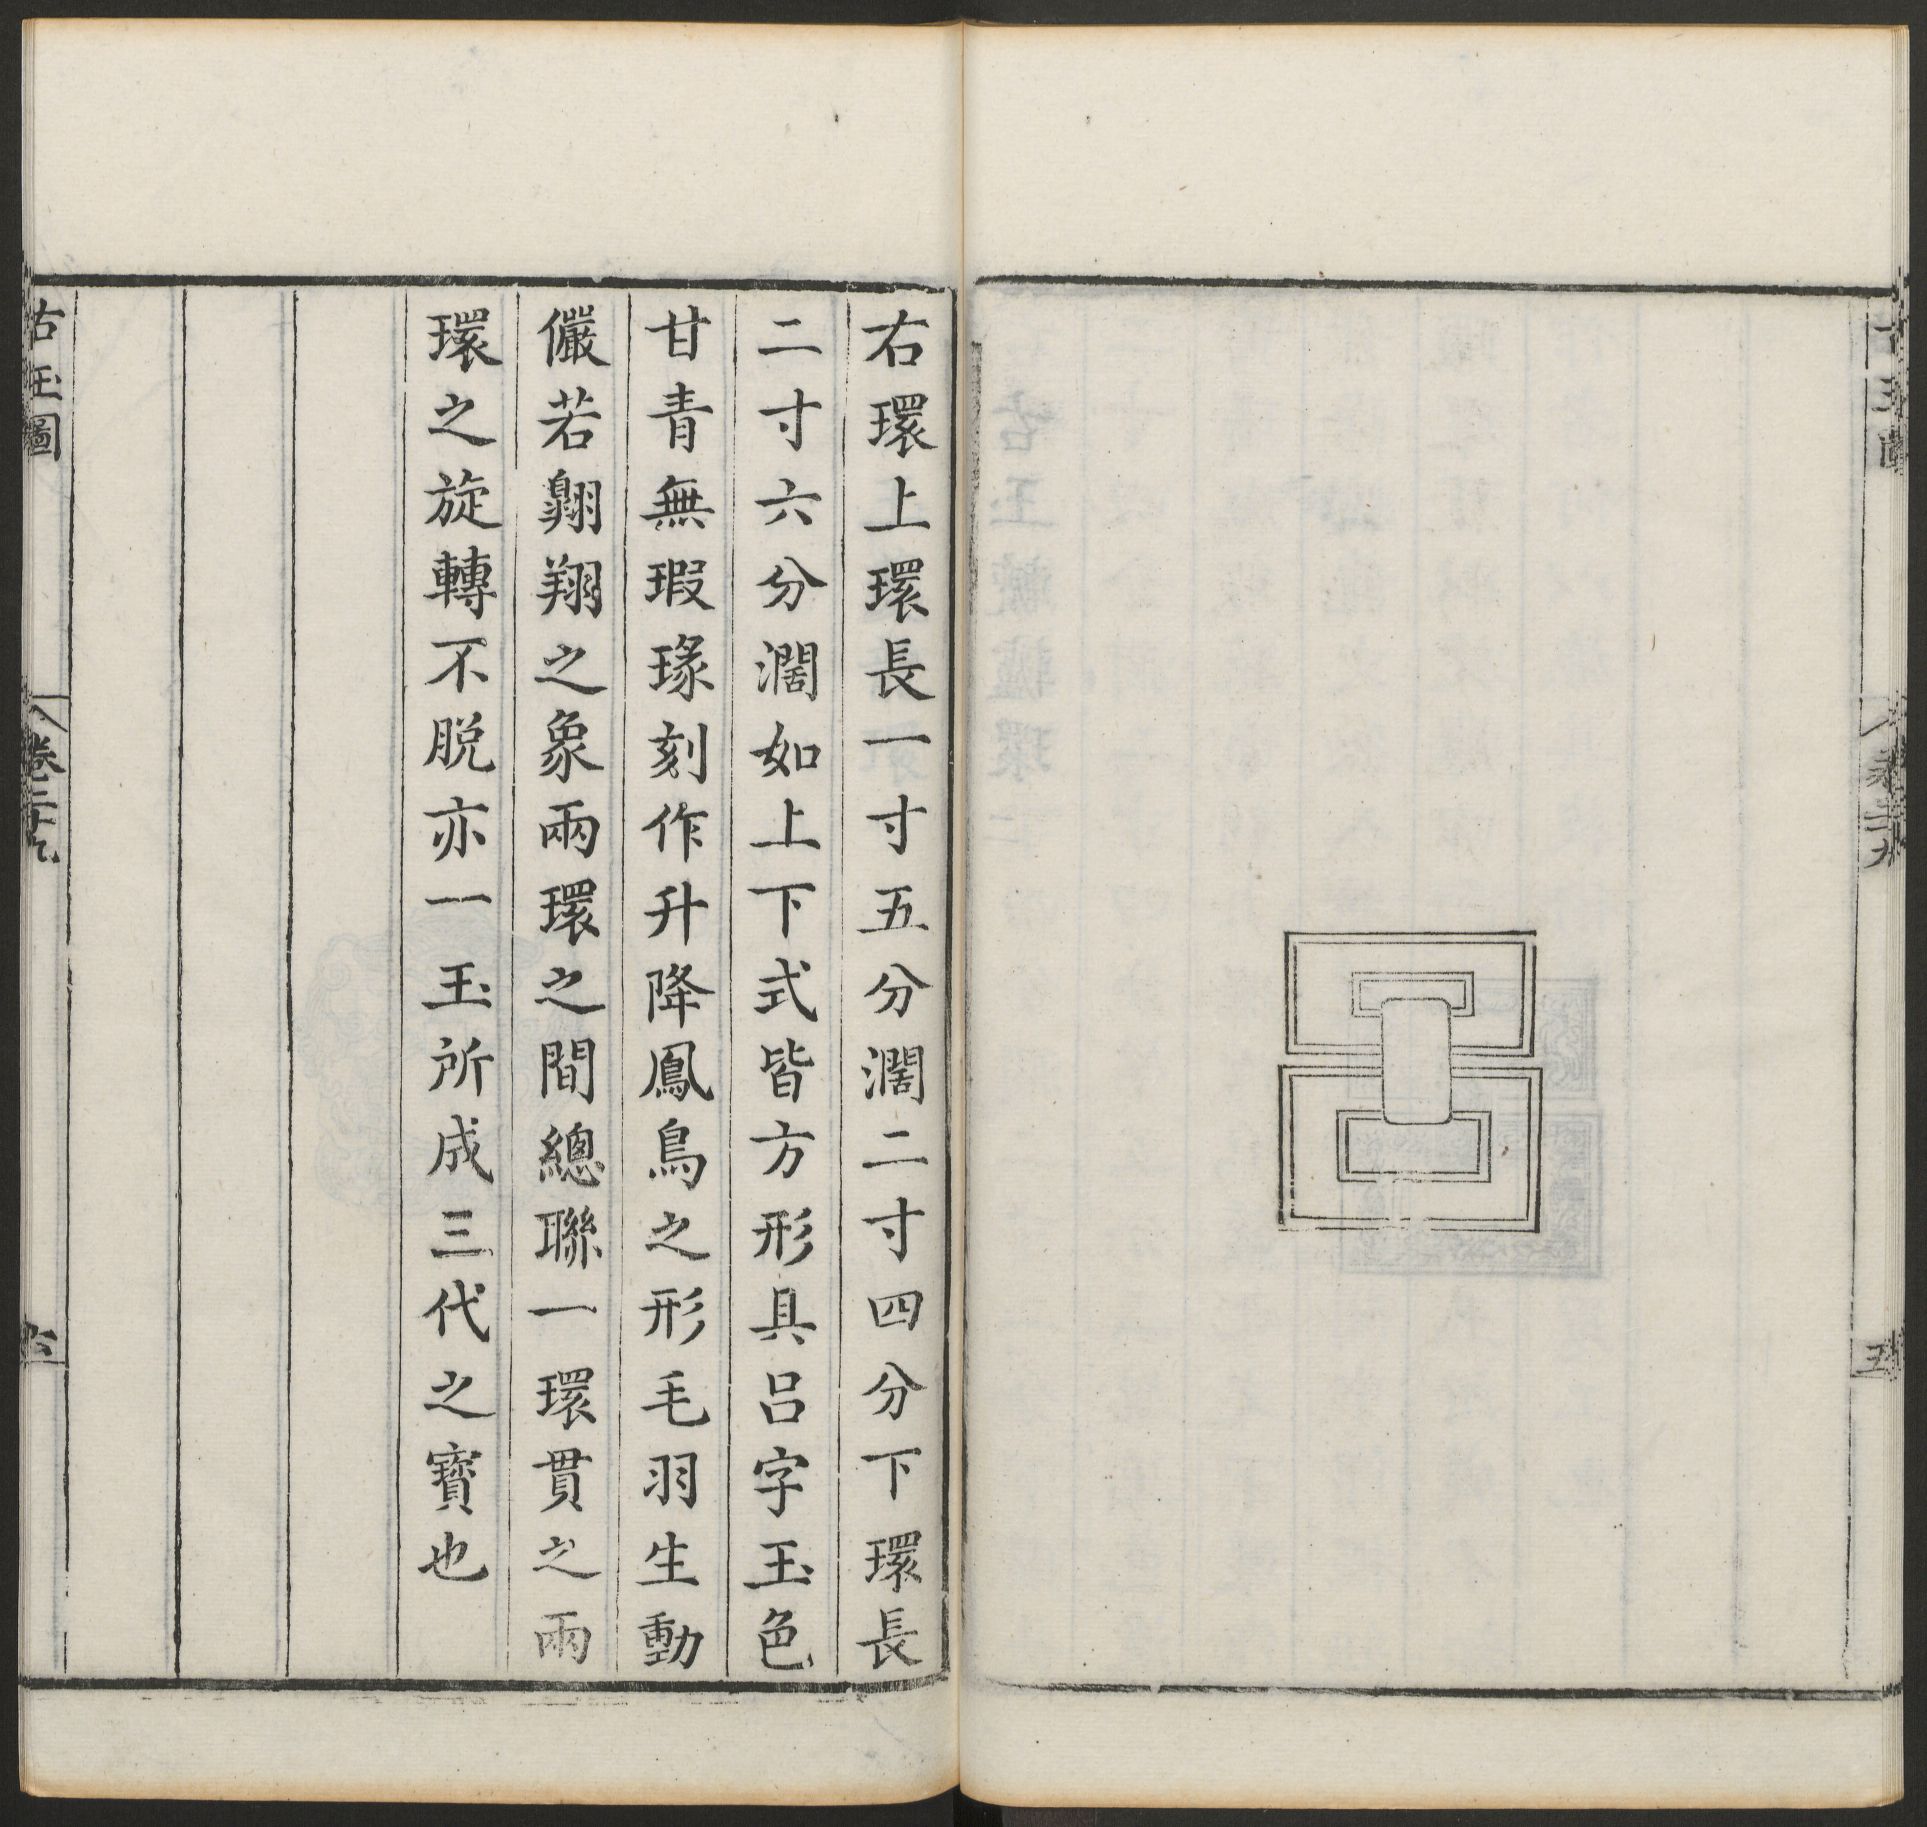 古玉圖
卷二十九
五
右環上環長一寸五分濶二寸四分下環長
二寸六分濶如上下式皆方形具呂字玉色
甘青無瑕瑑刻作升降鳳鳥之形毛羽生動
儼若翺翔之象兩環之間總聯一環貫之兩
環之旋轉不脱亦一玉所成三代之寶也
古玉圖
卷二十九
六